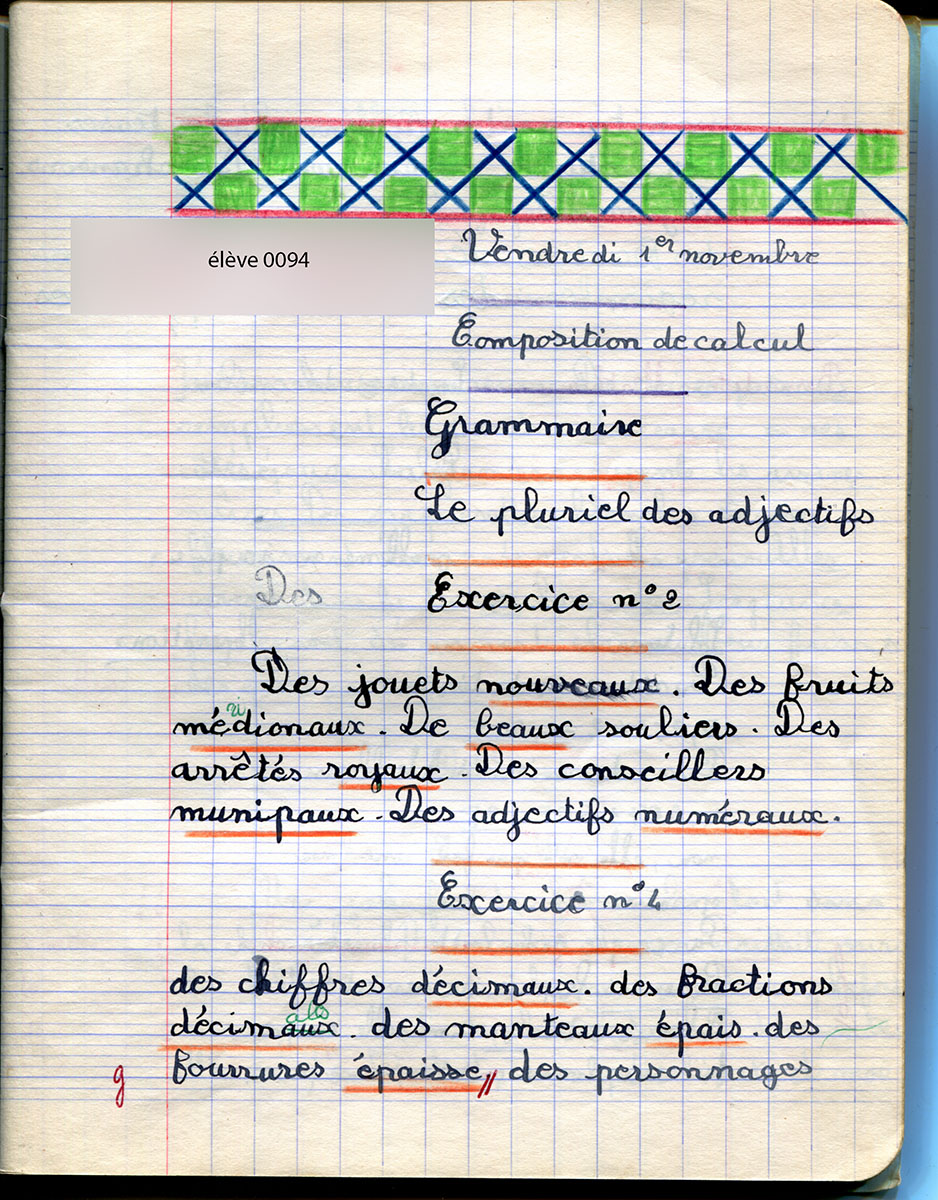 élève 0094
Vendredi 1er novembre
Composition de calcul
Grammaire
Le pluriel des adjectifs
Des Exercice n° 2
Des jouets nouveaux. Des fruits
ri
médionaux. De beaux souliers. Des
arrêtés royaux. Des conseillers
munipaux. Des adjectifs numéraux.
Exercice n° 4
des chiffres décimaux. des fractions
ales
décimaux. des manteaux épais. des
g fourrures épaisse, des personnages